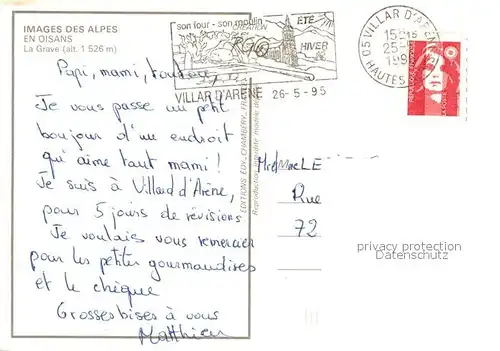 IMAGES DES ALPES
EN OISANS
La Grave (alt. 1 526 m)
son four - son moulin
ÉTÉ
HIVER
VILLAR D'ARENE 26-5-95
05 VILLAR D'ARENE
15H15
25-
199
HAUTES
LA POSTE
Papi, mami,
Je vous passe un petit
bonjour d'un endroit
qu'aime tant mami !
Je suis à Villard d'Arène,
pour 5 jours de révisions
Je voulais vous remercier
pour les petites gourmandises
et le chèque
Grosses bises à vous
Matthieu
EDITIONS EDY-CHAMBERY
Reproduction interdite
Mr et Mme LE
Rue
72
privacy protection
Datenschutz